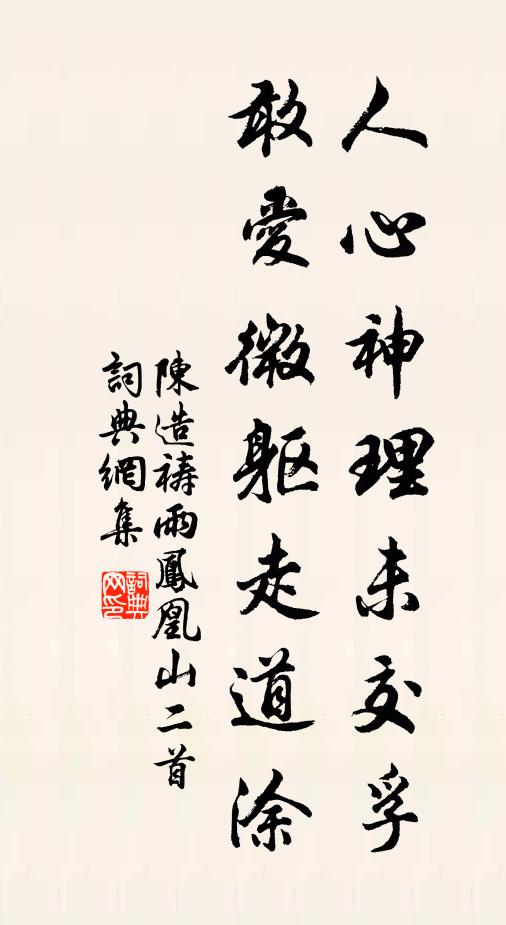 人心神理未交孚
敢愛微軀走道涂
陳造禱雨鳳凰山二首
詞典網集
詞典網印